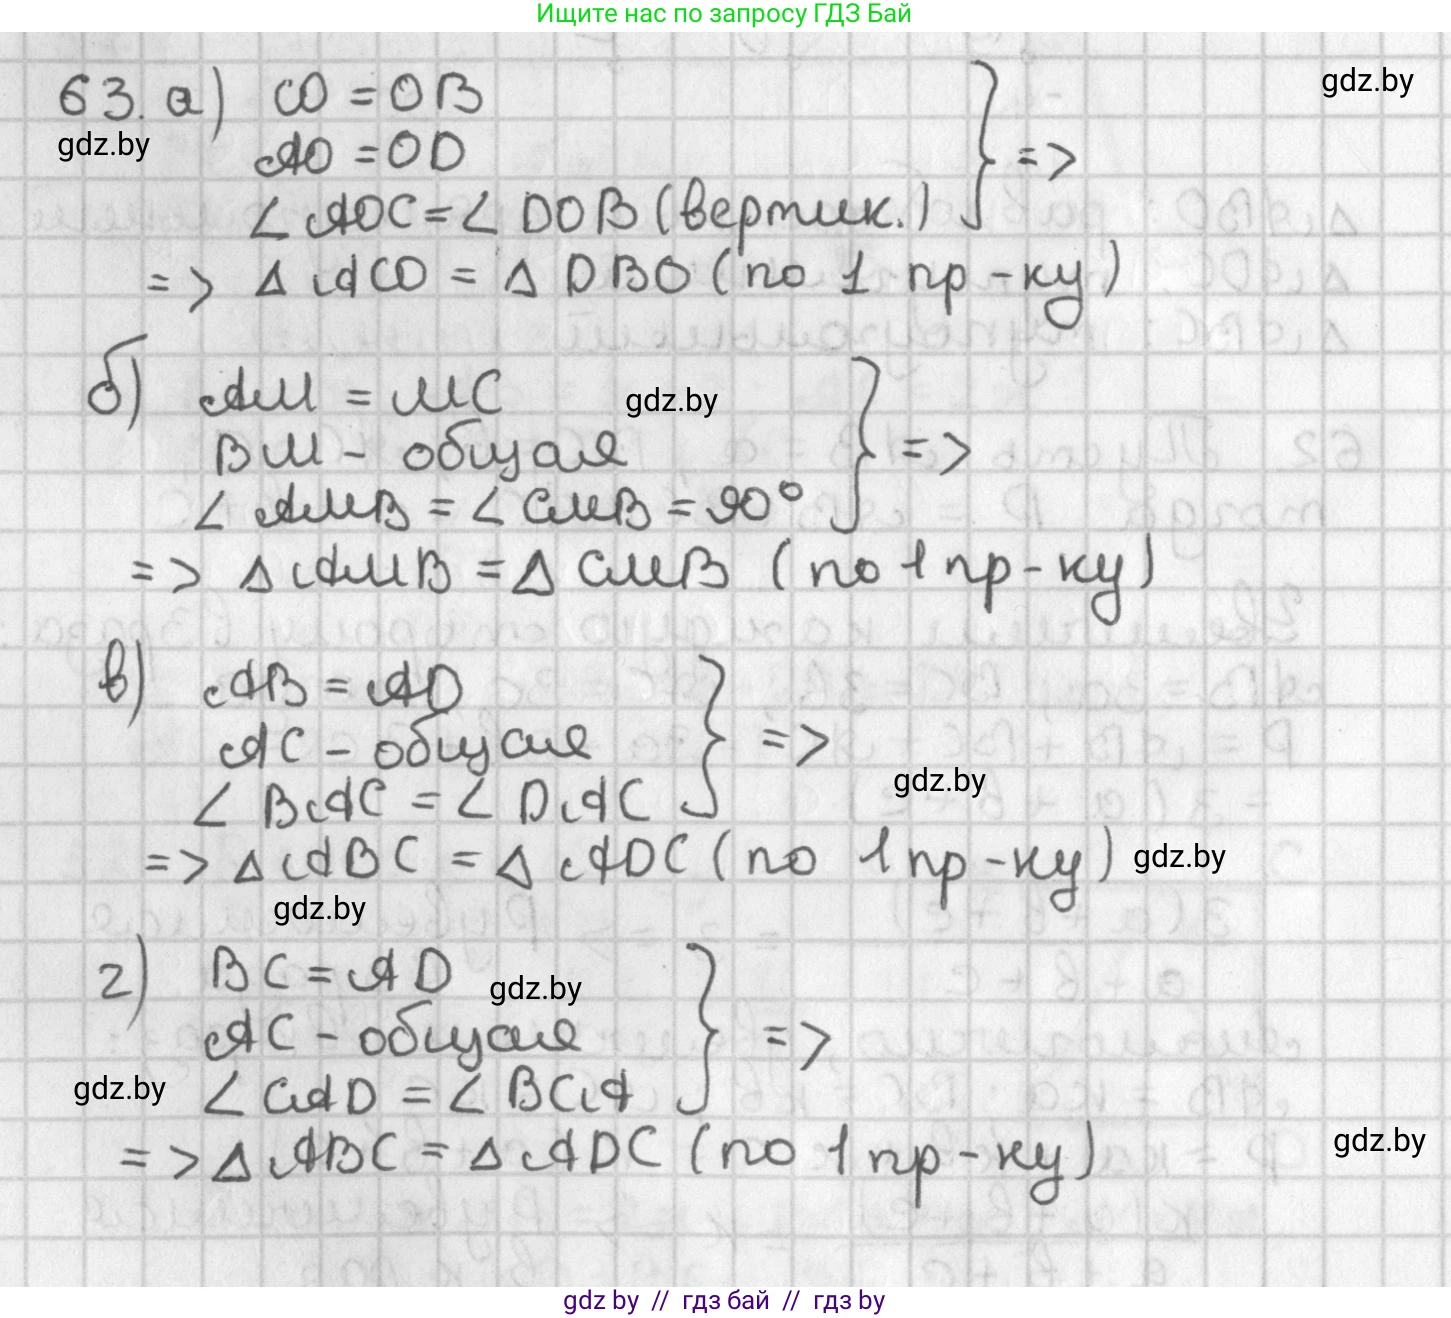 Ищите нас по запросу ГДЗ Бай
63. а) CO = OB
gdz.by
gdz.by
AO = OD
∠AOC = ∠DOB (вертик.) } =>
=> Δ ACO = Δ DBO (по 1 пр-ку)
б) AM = MC
gdz.by
BM - общая } =>
∠AMB = ∠CMB = 90°
=> Δ AMB = Δ CMB (по 1 пр-ку)
в) AB = AD
AC - общая } =>
gdz.by
∠BAC = ∠DAC
=> Δ ABC = Δ ADC (по 1 пр-ку)
gdz.by
gdz.by
г) BC = AD
gdz.by
AC - общая } =>
gdz.by
∠CAD = ∠BCA
=> Δ ABC = Δ ADC (по 1 пр-ку)
gdz.by
gdz by // гдз бай // гдз by